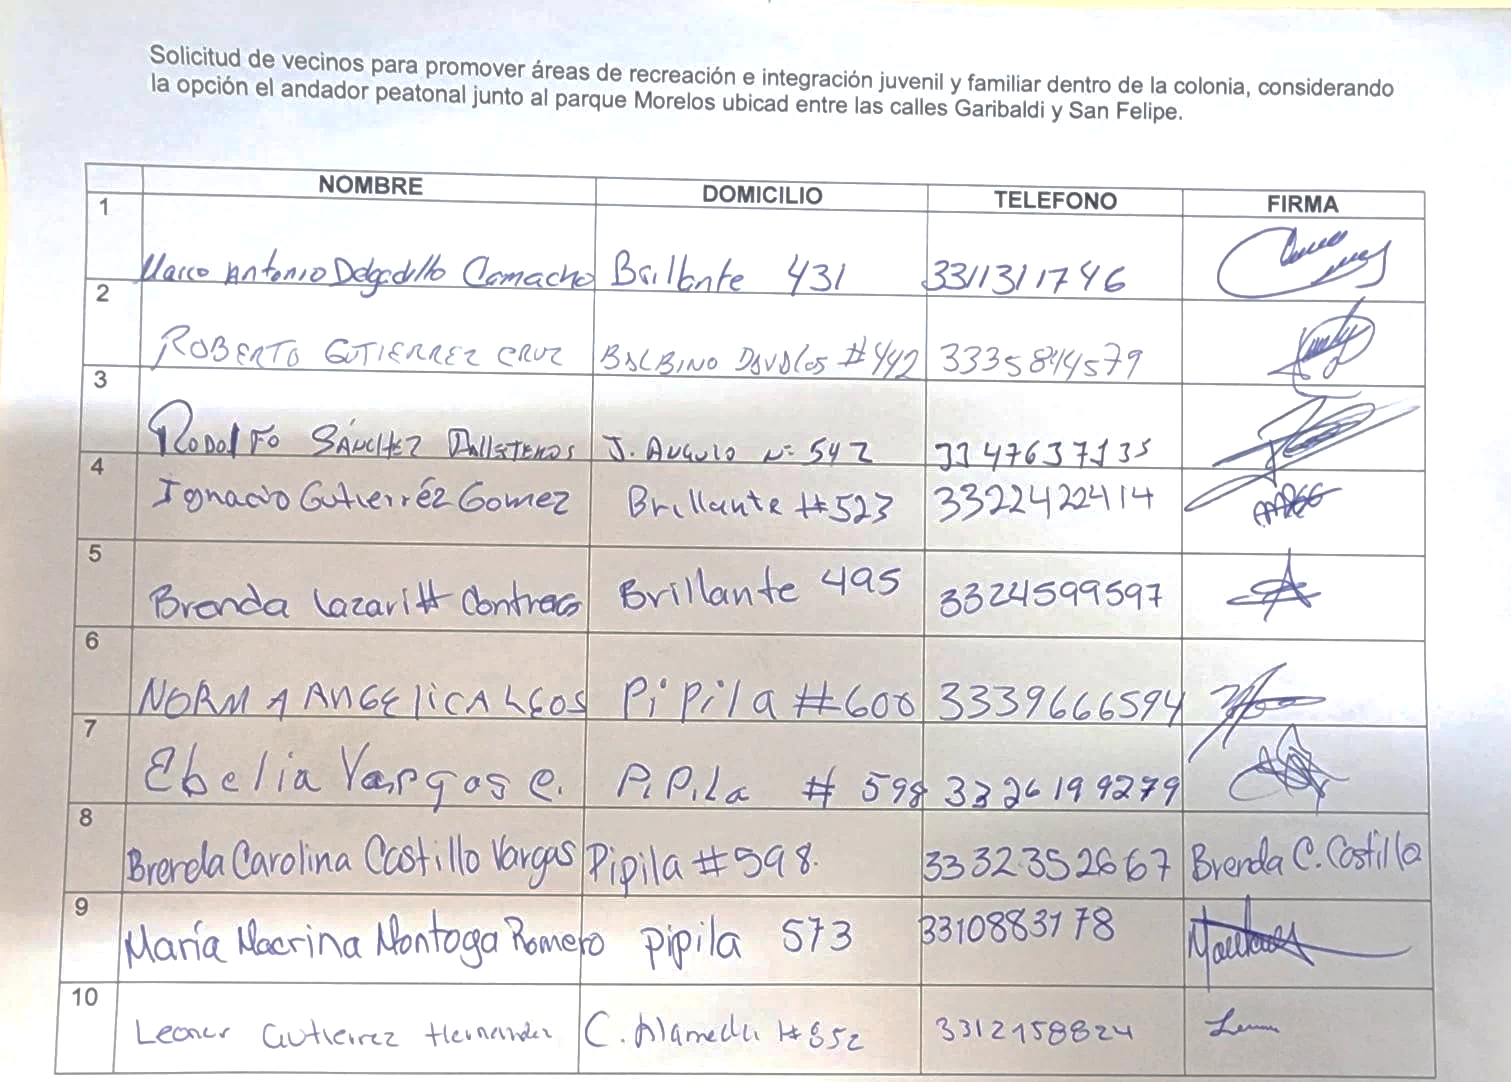 Solicitud de vecinos para promover áreas de recreación e integración juvenil y familiar dentro de la colonia, considerando
la opción el andador peatonal junto al parque Morelos ubicad entre las calles Garibaldi y San Felipe.
NOMBRE DOMICILIO TELEFONO FIRMA
1 Marco Antonio Delgadillo Camacho Brillante 431 3311311746
2 ROBERTO GUTIERREZ CRUZ BALBINO DAVALOS #442 3335844579
3 RODOLFO SÁNCHEZ J. ANGULO Nº 542 3347637135
4 Ignacio Gutierréz Gomez Brillante #523 3322422414
5 Brenda Lazaritt Contreras Brillante 495 3324599597
6 NORMA ANGELICA LEOS PiPila #600 3339666594
7 Ebelia Vargas C. PiPiLa # 598 3326199279
8 Brenda Carolina Castillo Vargas Pipila #598. 3332352667 Brenda C. Castillo
9 María Macrina Montoya Romero Pipila 573 3310883178
10 Leonor Gutierrez Hernandez C. Alameda #852 3312158824